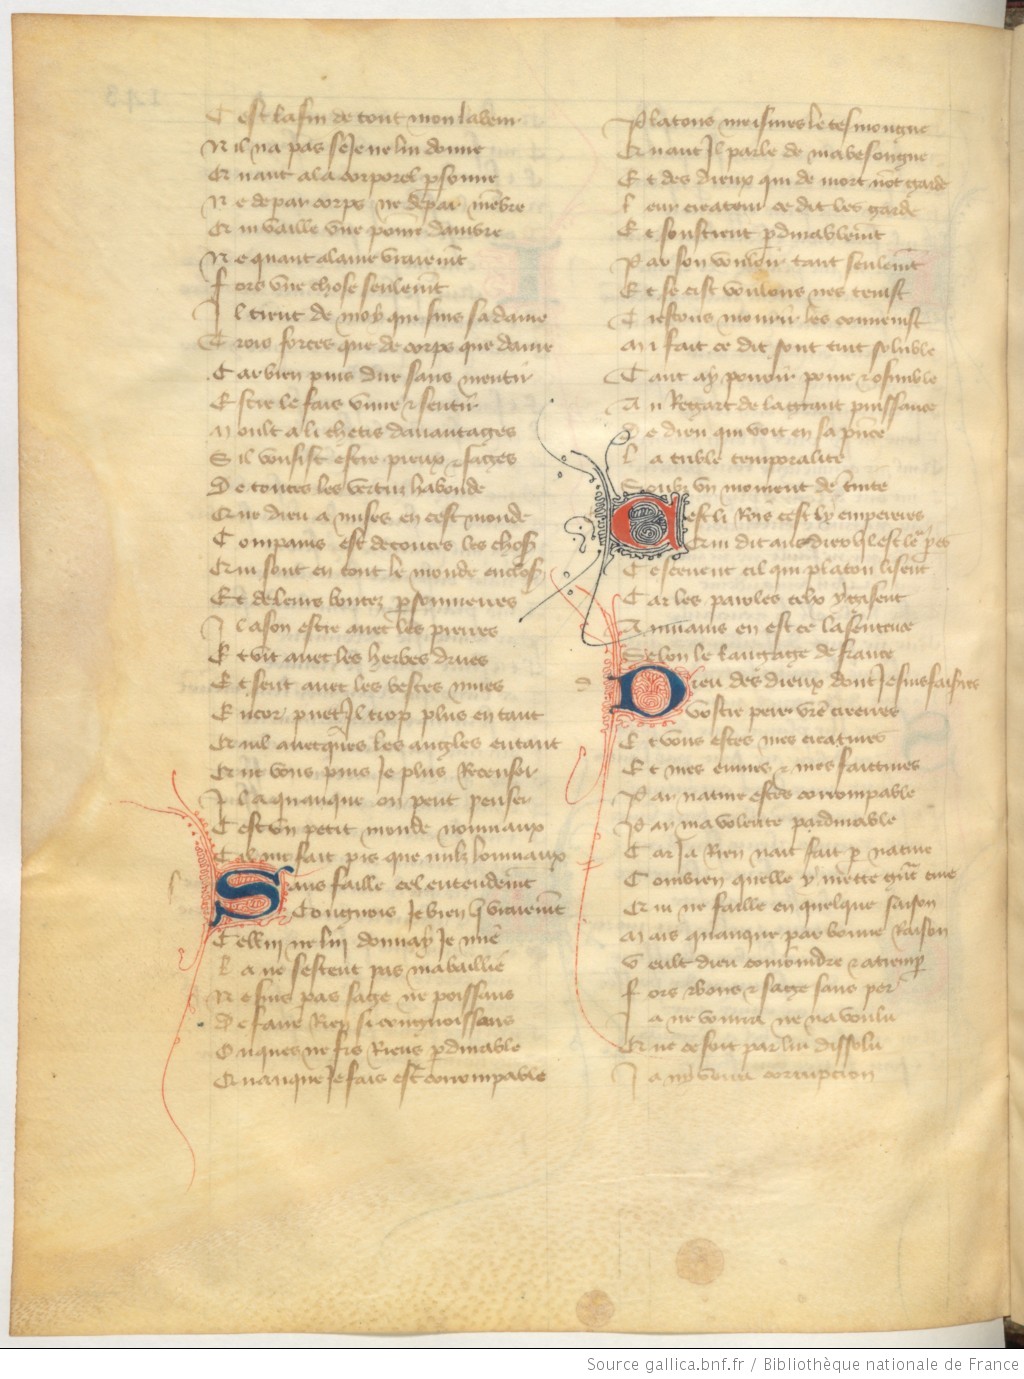 C est la fin de tout mon labeur
N il na pas se Je ne lui donne
Qr nant a la corporel psonne
N e de par corps ne de par mebre
Qr ui vaille vne pome dambre
N e quant a lame vraiemt
F ors vne chose seulemt
I l tient de moy qui suis sa dame
T rois forces que de corps que dame
C ar bien puis dire sans mentir
E stre le fais viure & sentir
M oult a li chetis dauantages
S il vousist estre preux & sages
D e toutes les vertuz habonde
Qr ne dieu a mises en cest monde
C ompains est de toutes les choses
Qr ui sont en tout le monde encloses
E t de leurs bontez psonnieres
I l a son estre auec les pierres
E t vit auec les herbes drues
E t sent auec les bestes mues
E ncor puet Il trop plus en tant
Qr uil auecques les angles entant
Qr ue vous puis Je plus Recenser
I l a quanque on peut penser
C est vn petit monde nouuiaux
C il me fait pis que nulz louuiaux
Sans faille cel entendemt
Congnois Je bien q vraiemt
C elluy ne lui donnay Je mie
L a ne sestent pas ma baillie
N e suis pas sage ne poissans
D e faire Rien si congnoissans
O nques ne fis Riens pdurable
Qr uanque Je fais est corrompable
P latons meismes le tesmongne
Qr uant Il parle de ma besongne
E t des dieux qui de mort not garde
L eur createur ce dit les garde
E t soustient pdurablemt
P ar son vouloir tant seulemt
E t se cist vouloirs nes tenist
T restous mourir les conuenist
M i fait ce dit sont tuit soluble
T ant ay pouoir poure & obnuble
A u Regart de la grant puissance
D e dieu qui voit en sa pnce
L a trible temporalite
S oubz vn moment de trinite
Cest li Rois cest ly empereres
Qr ui dit aus dieux ql est le pes
C e sceuent cil qui platon lisent
C ar les paroles telx y gisent
A u mains en est ce la sentence
S elon le langage de france
Dieu des dieux dont Je suis faisires
Vostre pere vre creeres
E t vous estes mes creatures
E t mes euures & mes faictures
P ar nature estes corrompable
P ar ma volente pardurable
C ar Ja Rien nait fait p nature
C ombien quelle y mette gnt cure
Qr ui ne faille en quelque saison
M ais quanque par bonne Raison
V eult dieu conioindre & atremper
F ors & bons & sage sans per
J a ne vourra ne na voulu
Qr ue ce soit par lui dissolu
J a ny vendra corrupcion
Source gallica.bnf.fr / Bibliothèque nationale de France